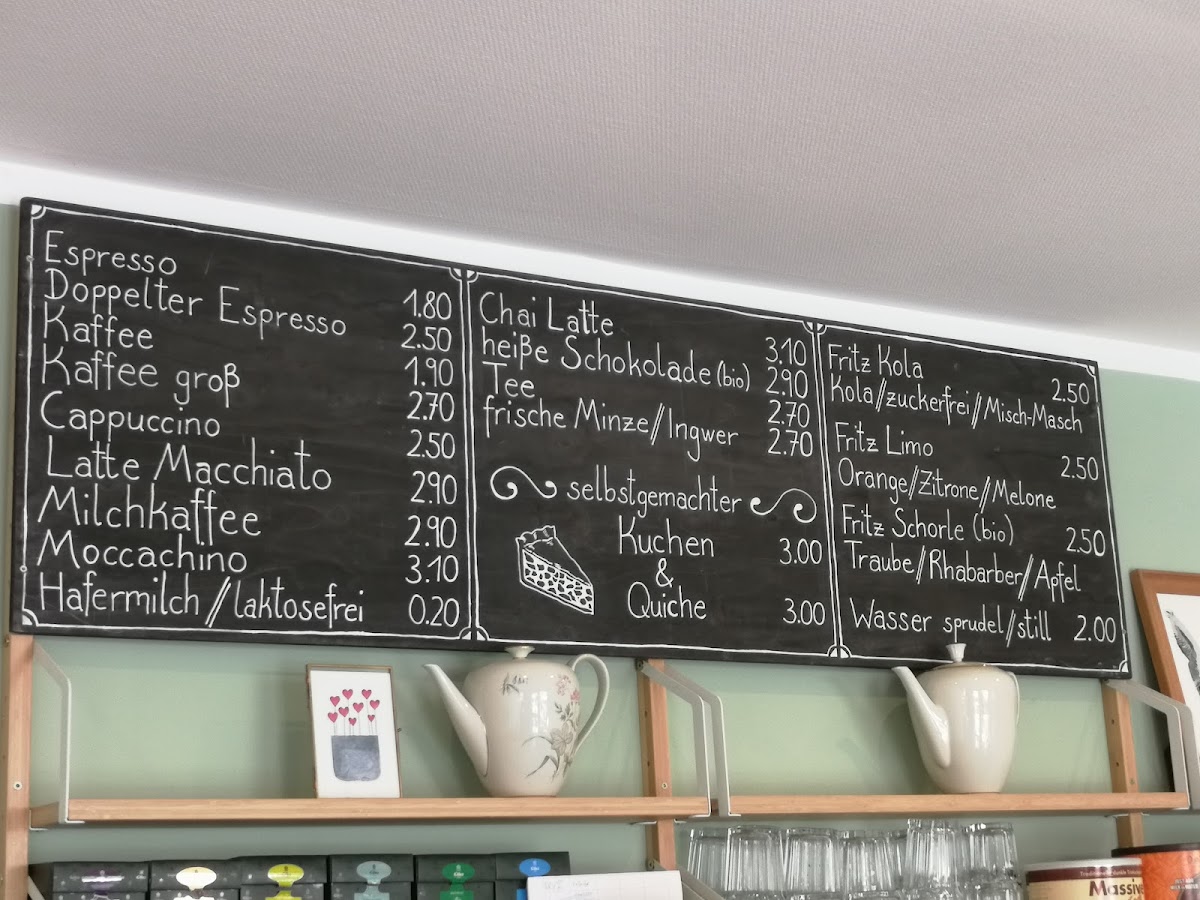 Espresso 1.80
Doppelter Espresso 2.50
Kaffee 1.90
Kaffee groß 2.70
Cappuccino 2.50
Latte Macchiato 2.90
Milchkaffee 2.90
Moccachino 3.10
Hafermilch // laktosefrei 0.20
Chai Latte 3.10
heiße Schokolade (bio) 2.90
Tee 2.70
frische Minze//Ingwer 2.70
selbstgemachter
Kuchen 3.00
&
Quiche 3.00
Fritz Kola 2.50
Kola//zuckerfrei//Misch-Masch
Fritz Limo 2.50
Orange//Zitrone//Melone
Fritz Schorle (bio) 2.50
Traube//Rhabarber//Apfel
Wasser sprudel//still 2.00
Massive